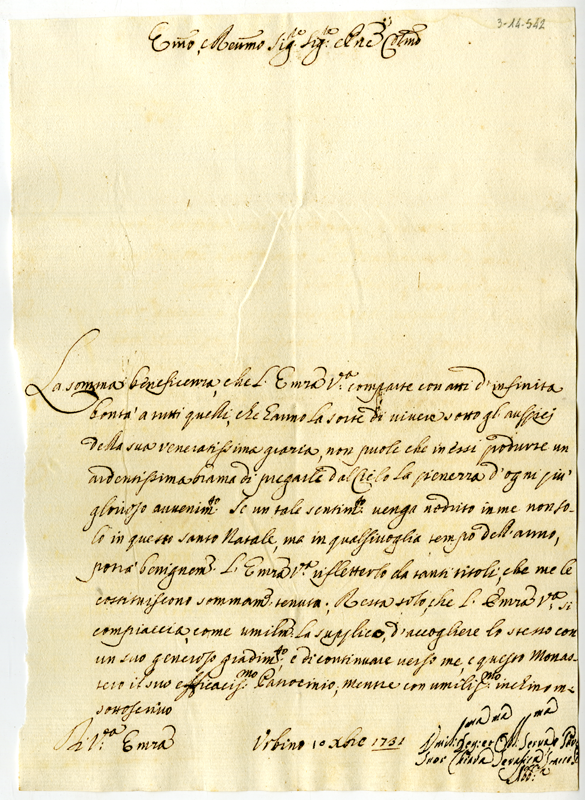 3-14-542
Emo, e Reumo Sig.re Sig.re e Pne Colmo
La somma beneficenza, che L'Emza V.ra comparte con atti d'infinita
bontà a tutti quelli, che hanno la sorte di vivere sotto gl'auspizj
della sua veneratissima grazia, non puole che in essi produrre un
ardentissima brama di pregarle dal Cielo la pienezza d'ogni più
glorioso avvenim.to Se un tale sentim.to venga nodrito in me non so-
lo in questo santo Natale, ma in qualsivoglia tempo dell'anno,
potrà benignam.e L'Emza V.ra rifletterlo da tanti titoli, che me le
costituiscono sommam.e tenuta. Resta solo, che L'Emza V.ra si
compiaccia, come umilm.e la supplico, d'accogliere lo stesso con
un suo generoso gradim.to, e di continuare verso me, e questo Monas-
tero il suo efficacis.mo Patrocinio, mentre con umilis.mo inchino mi
sottoscrivo
Di V.ra Emza
Urbino 10 Xbre 1731
Umil.ma Dev.ma et Obl.ma Serva
Suor Chiara Serafica
Abb.a